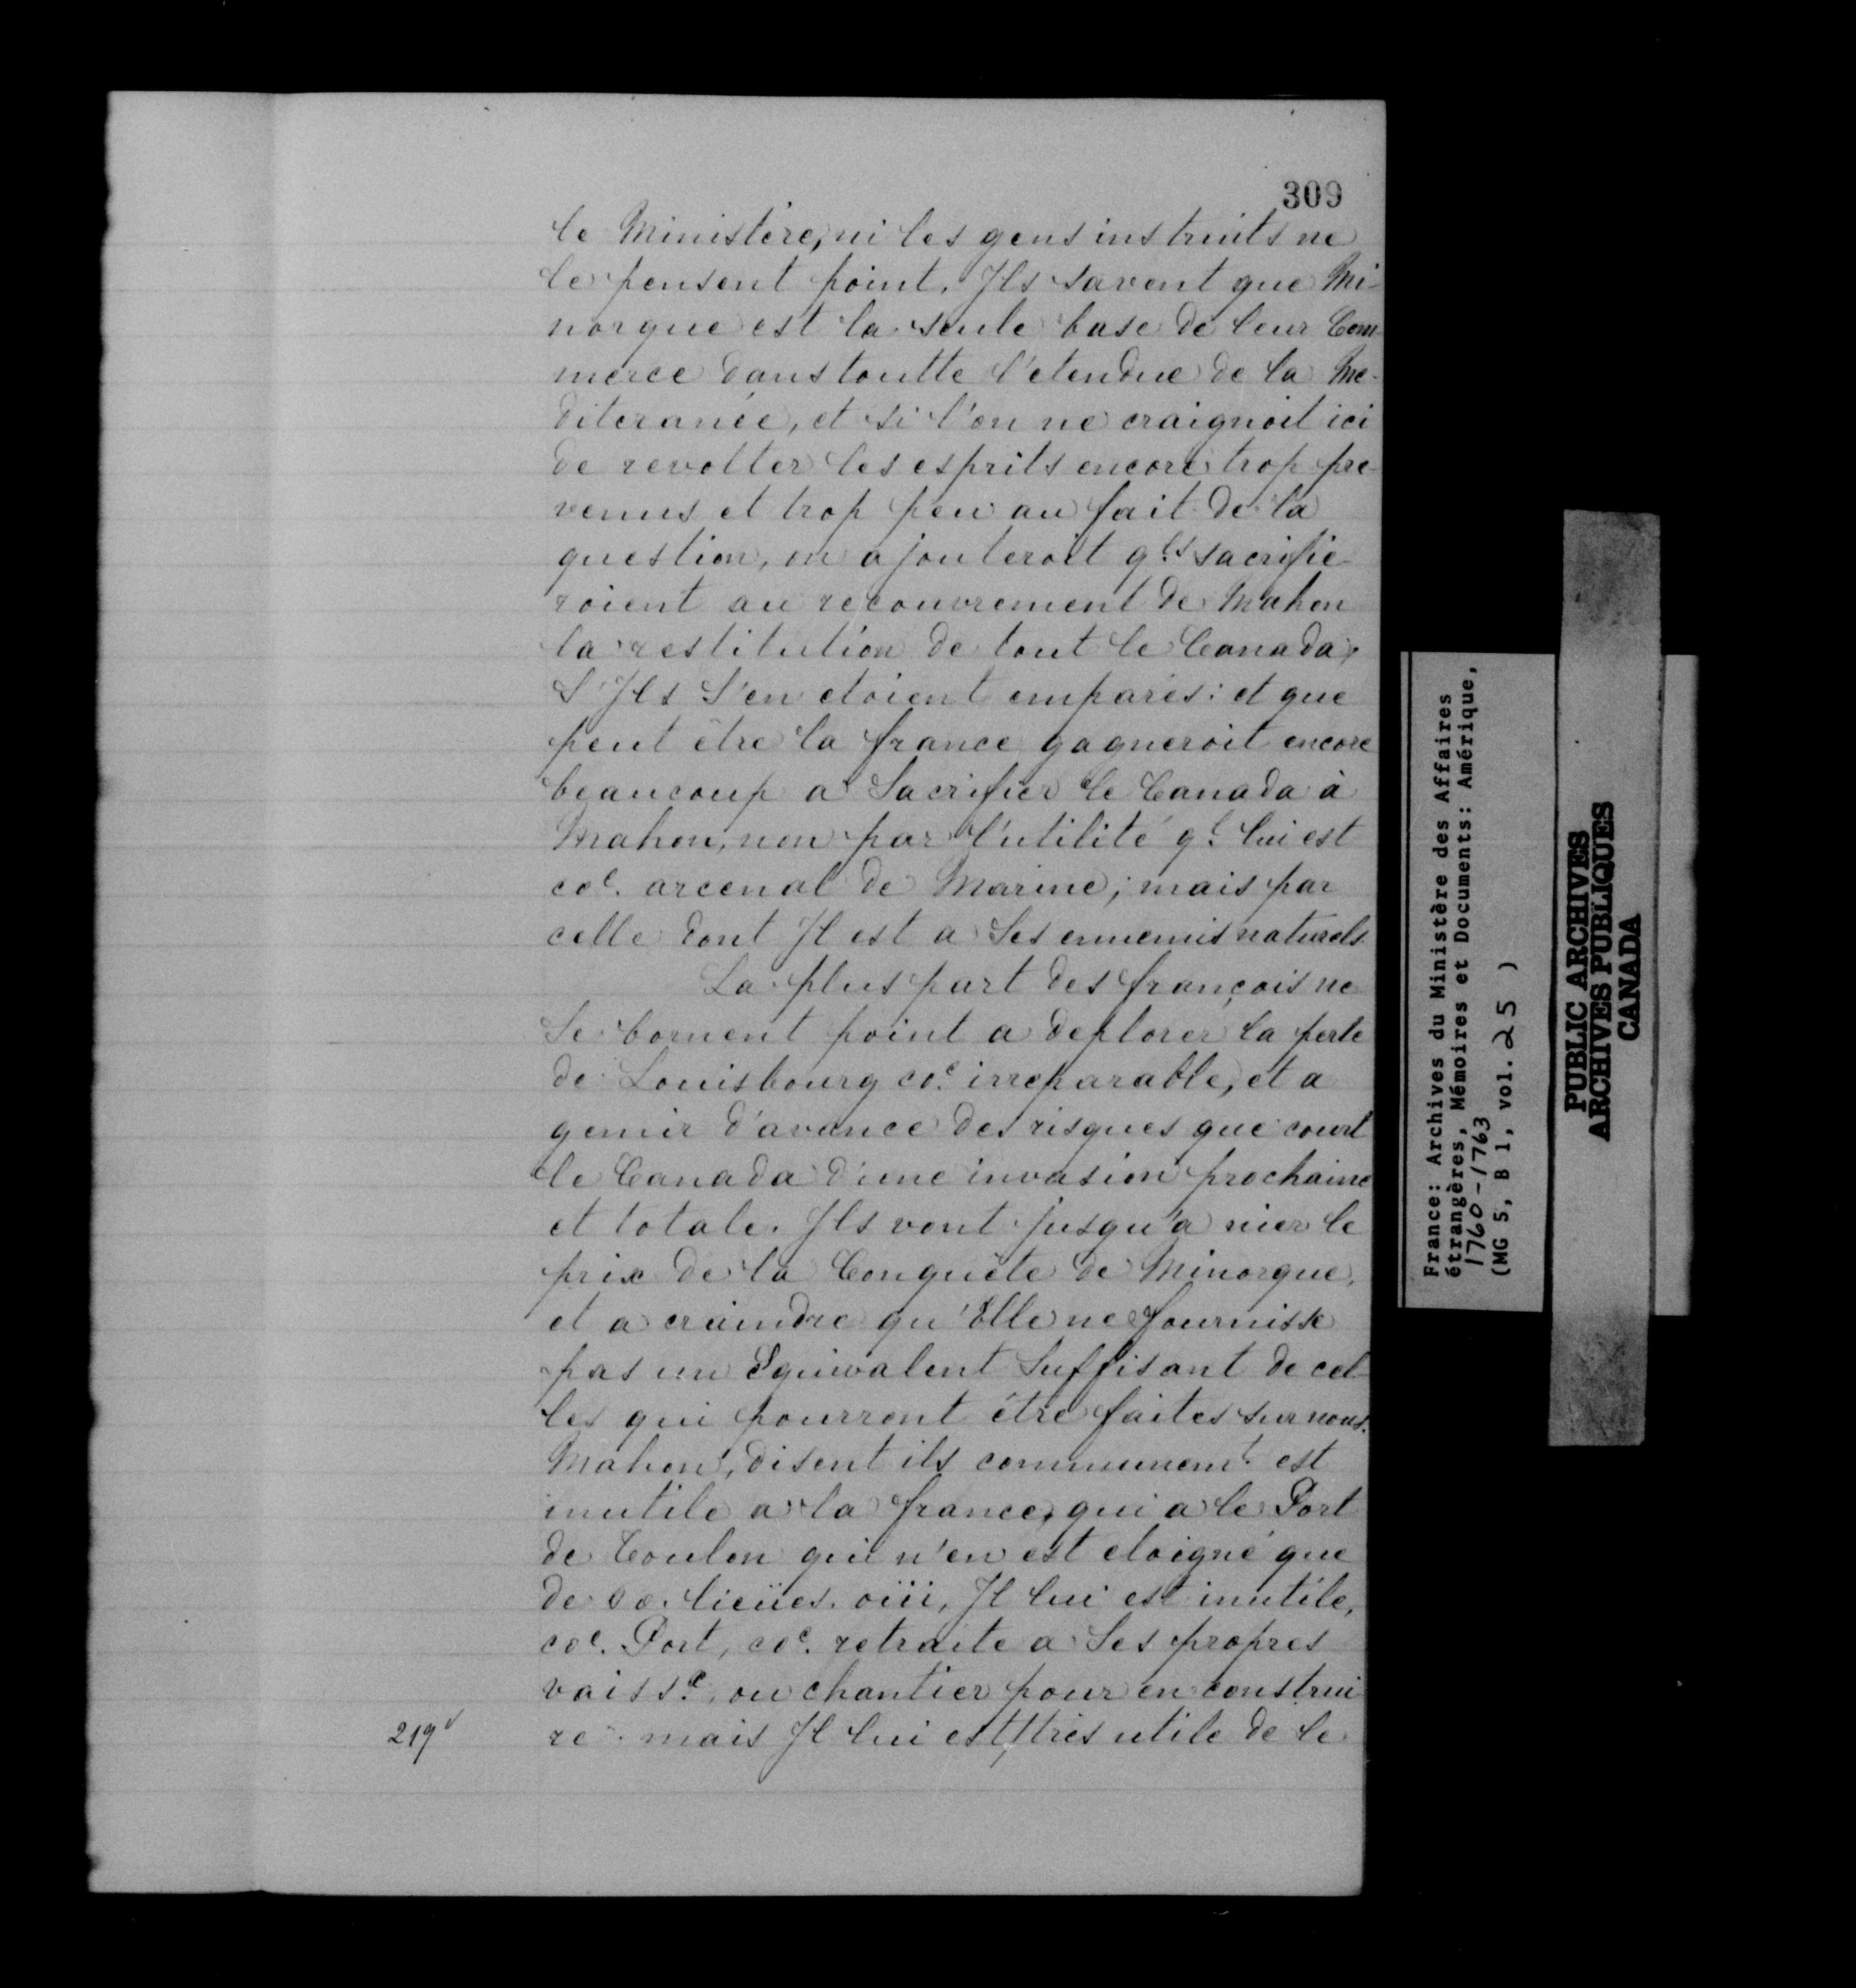 309
le Ministère, ni les gens instruits ne
le pensent point. Ils savent que Mi-
norque est la seule base de leur Com-
merce dans toutte l'etendue de la Me-
diteranée, et si l'on ne craignoit ici
de revolter les esprits encore trop pre-
venus et trop peu au fait de la
question, on ajouteroit q.ls sacrifie-
roient au recouvrement de Mahon
la restitution de tout le Canada,
S'Ils S'en etoient emparés: et que
peut être la france gagneroit encore
beaucoup a Sacrifier le Canada à
Mahon, non par l'utilité q.l lui est
coe. arcenal de Marine; mais par
celle dont Il est a Ses ennemis naturels.
La plus part des françois ne
Se bornent point a deplorer la perte
de Louisbourg coe. irreparable, et a
gemir d'avance des risques que court
le Canada d'une invasion prochaine
et totale. Ils vont jusqu'a nier le
prix de la Conquête de Minorque,
et a craindre qu'Elle ne fournisse
pas un Equivalent Suffisant de cel-
les qui pourront être faites sur nous.
Mahon, disent ils communem.t est
inutile a la france, qui a le Port
de Toulon qui n'en est eloigné que
de lieües. oüi, Il lui est inutile,
coe. Port, coe. retraite a Ses propres
vaiss.x ou chantier pour en construi-
219v re. mais Il lui est très utile de le
France: Archives du Ministère des Affaires
étrangères, Mémoires et Documents: Amérique,
1760-1763
(MG 5, B 1, vol. 25 )
PUBLIC ARCHIVES
ARCHIVES PUBLIQUES
CANADA